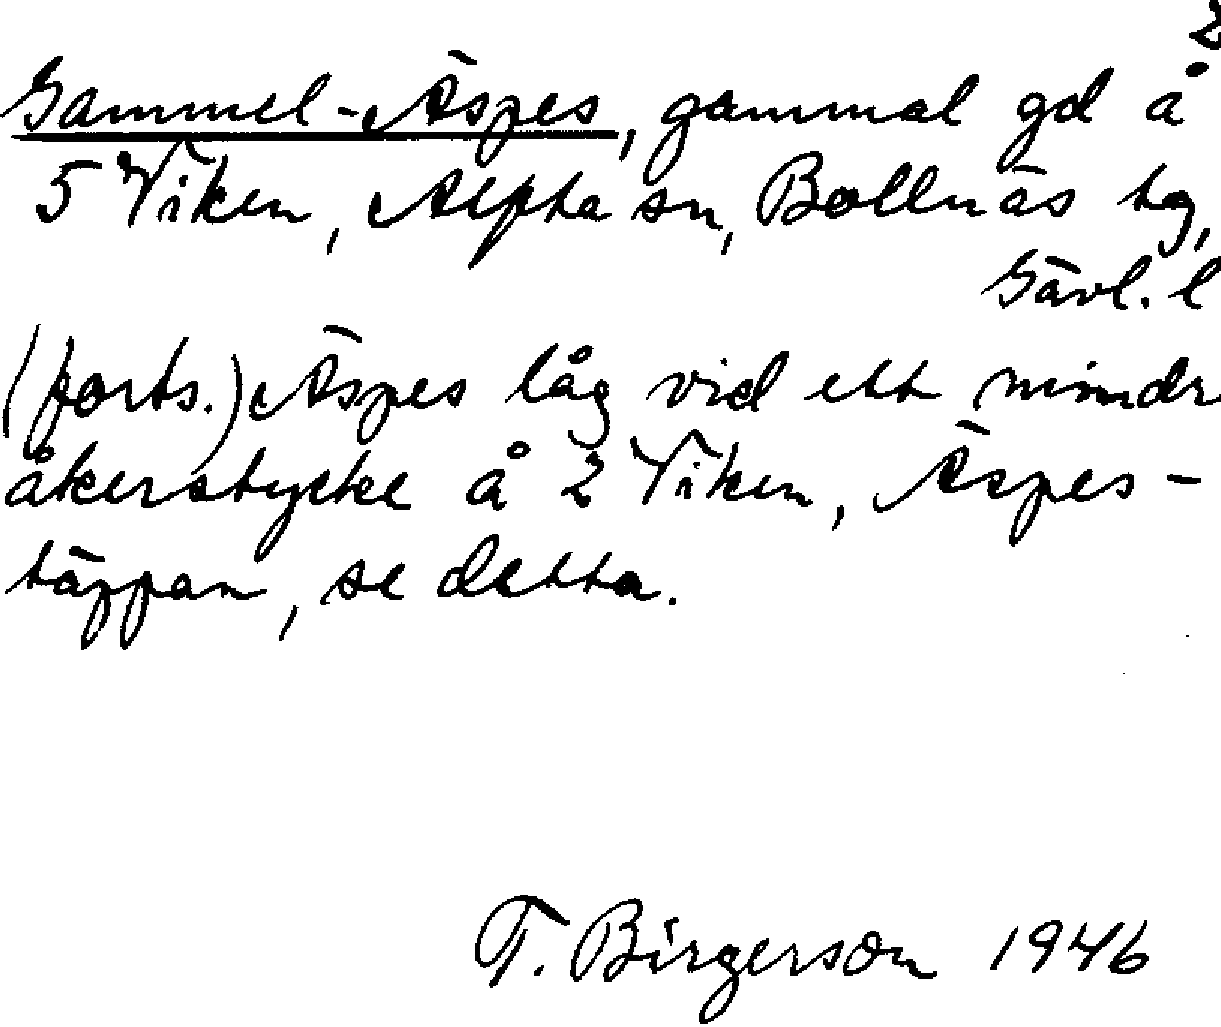 2
Gammel-Äspes, gammal gd å
5 Viken, Alfta sn, Bollnäs tg,
Gävl. l
(forts.) Äspes låg vid ett mindr
åkerstycke å 2 Viken, Äspes-
täppan, se detta.
T. Birgerson 1946